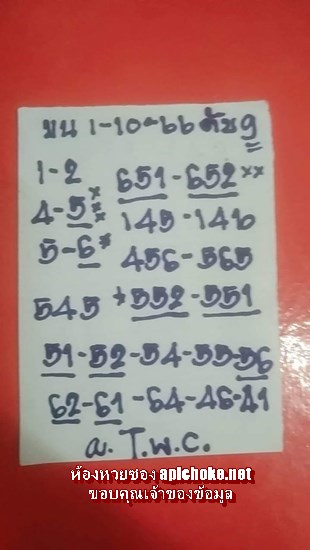 บน 1-10-66 ดับ 9
1-2 651-652××
4-5×× 145-146
5-6× 456-565
545 *552-551
51-52-54-55-56
62-61-64-46-41
a. T.W.C.
ห้องหวยซอง apichoke.net
ขอบคุณเจ้าของข้อมูล